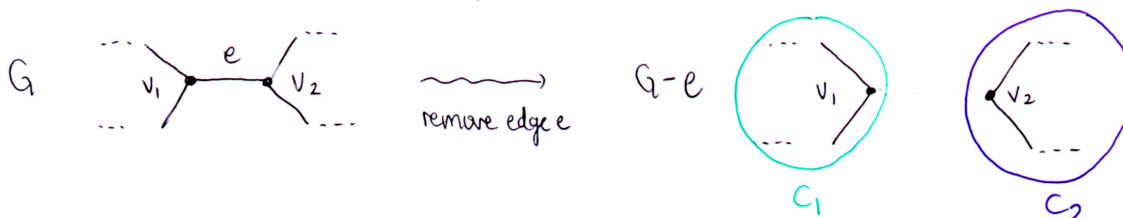 G
e
v₁
v₂
remove edge e
G-e
v₁
C₁
v₂
C₂